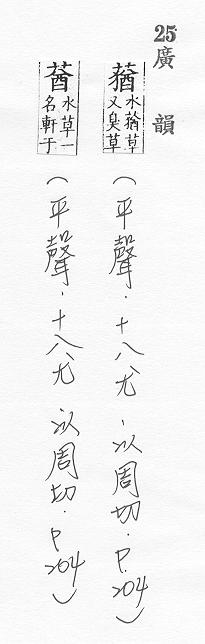 25廣韻
蕕 水蕕草又臭草 (平聲．十八尤、以周切．P.204)
莤 水草一名軒于 (平聲．十八尤 以周切．P204)